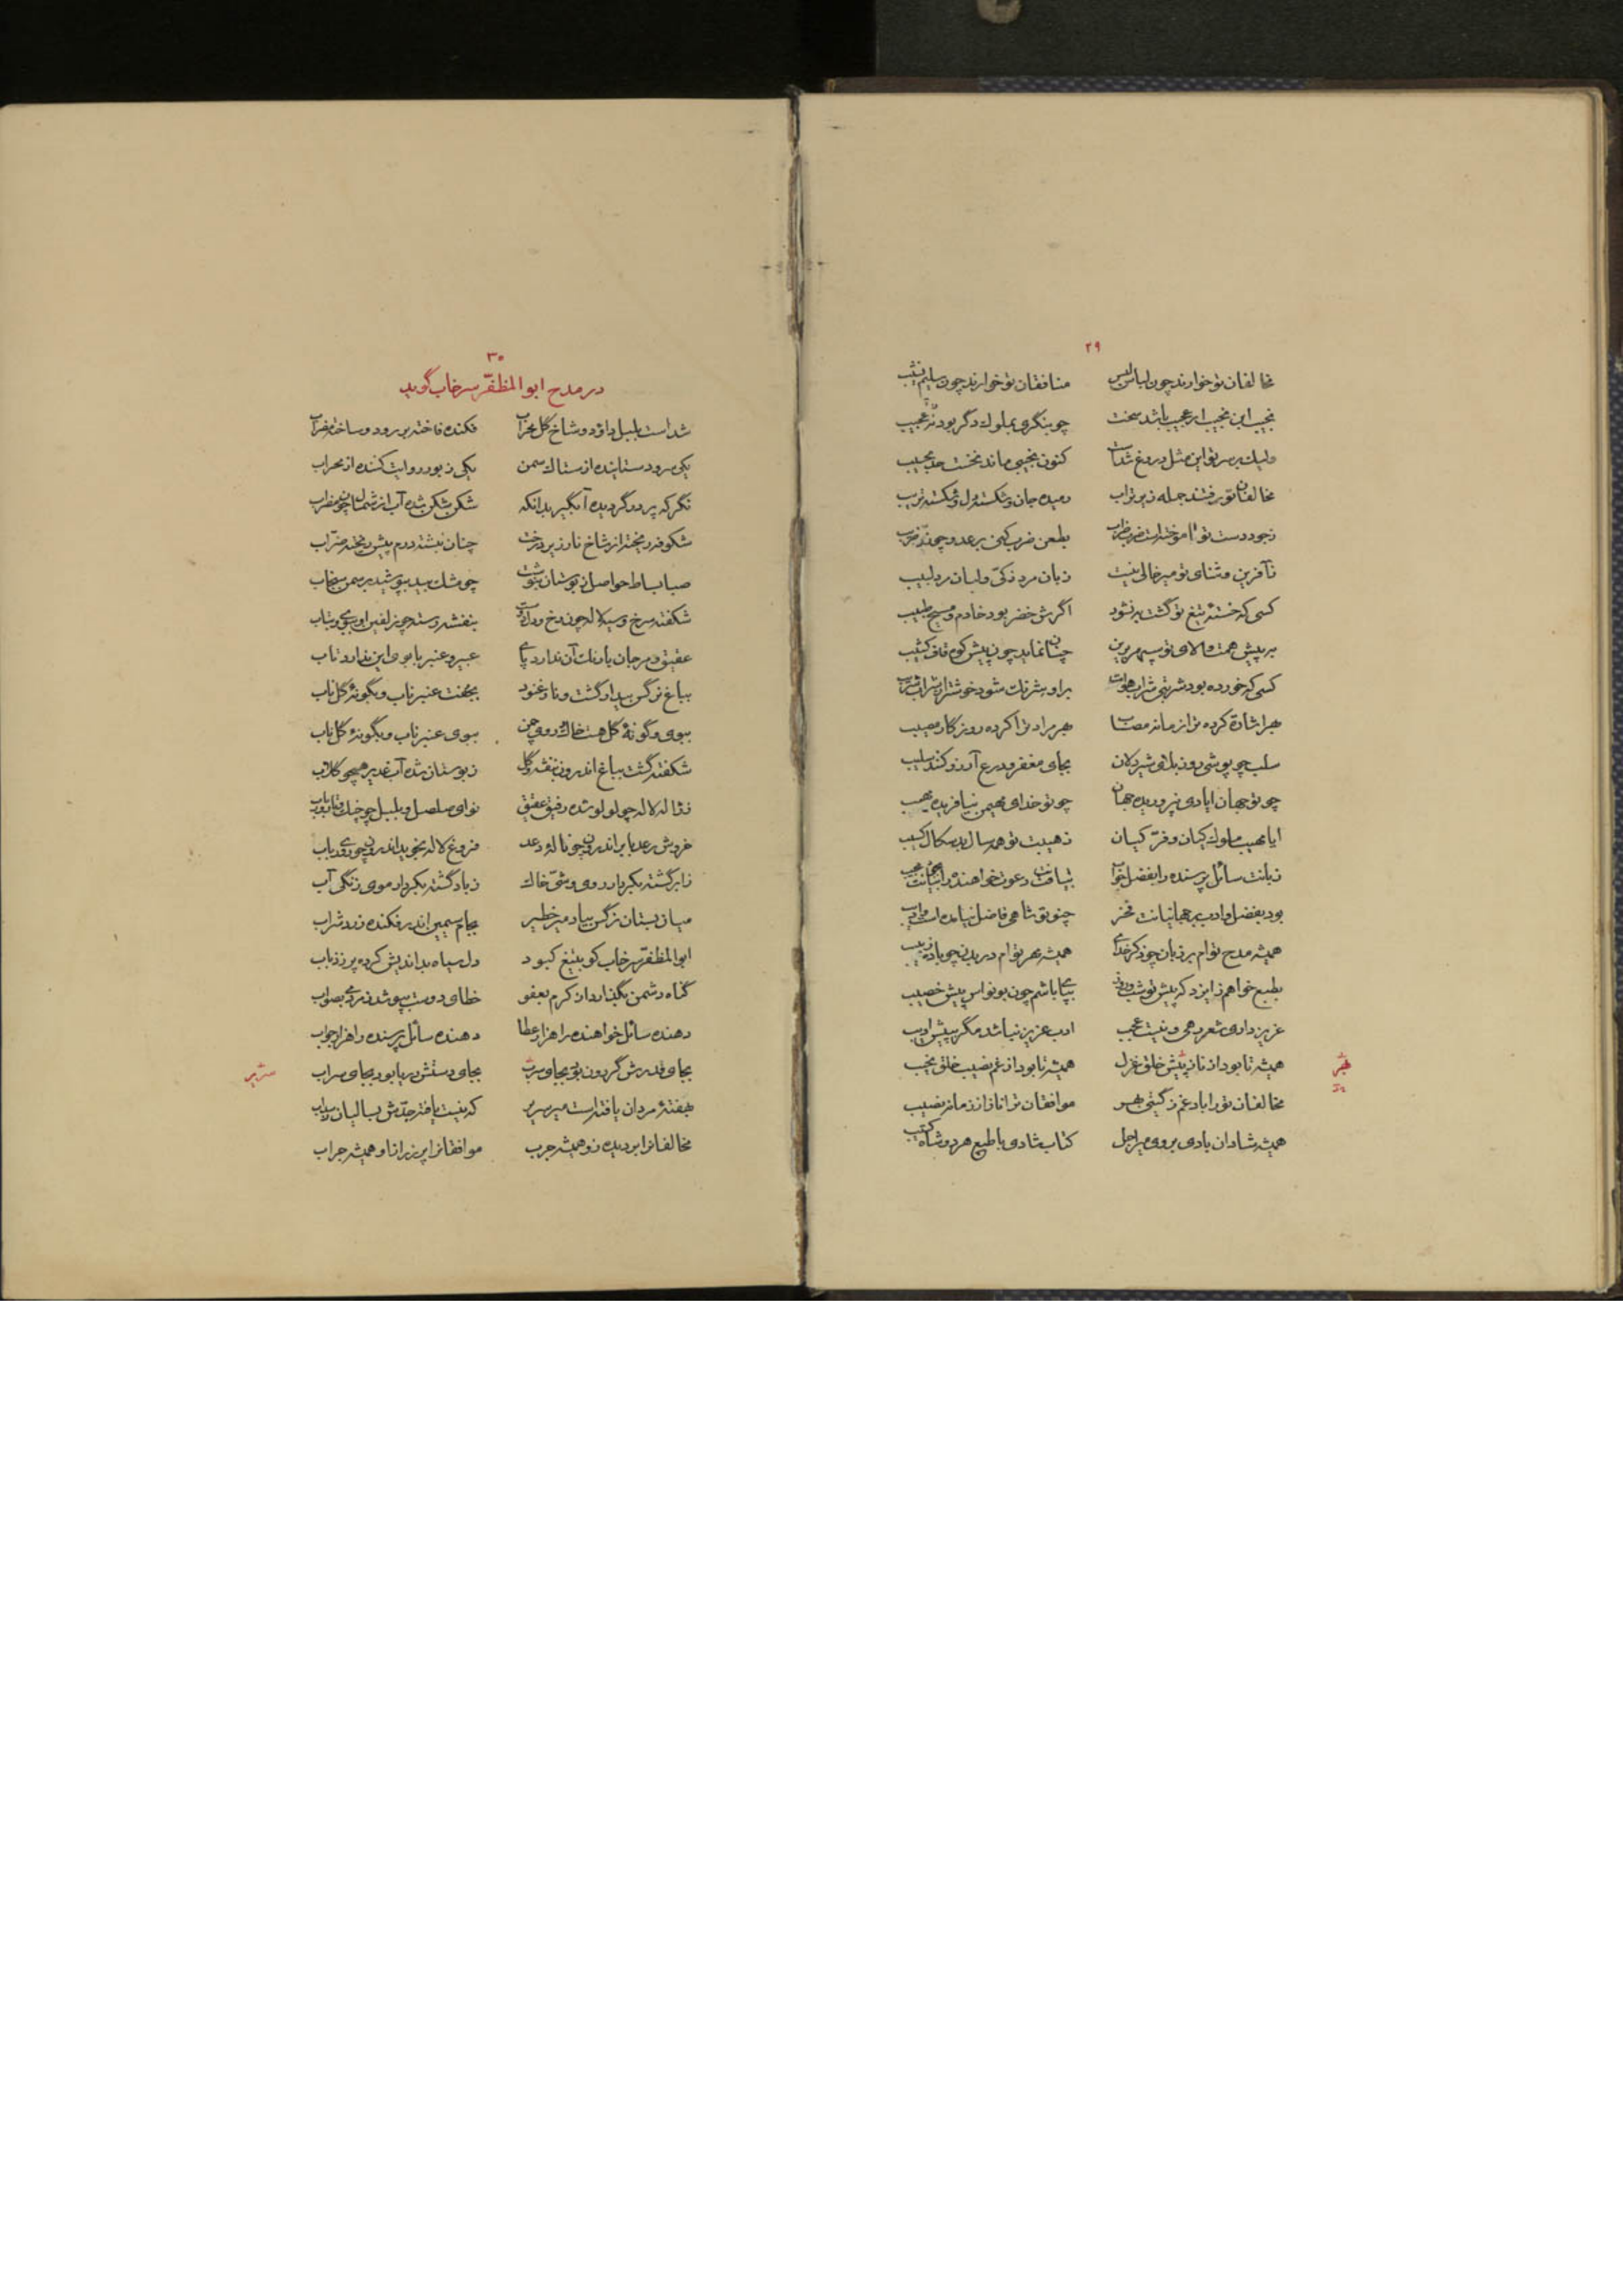 ۲۹
مخالفان تو خوارند چون لباس لبس منافقان تو خوارند چون سلیم نشب
نجیب ابن نجیب ار عجیب باشد سخت چو بنگری بملوک دگر بود نه عجیب
ولیک بر سر تو این مثل دروغ شداست کنون نجیبی ماند نخست حد نجیب
مخالفان تو رفتند جمله زیر تراب رمیده جان و شکسته دل و شکسته تریب
زجود دست تو آموخته است ضرب ضراب بطعن ضرب کنی بر عدو چو
زآفرین و ثنای تو میر خالی نیست زبان مرد زکی و لبان مرد لبیب
کسی که خسته تیغ تو گشت به نشود اگرش خضر بود خادم و مسیح طبیب
بر پیش همت والای تو سپهر برین چنان نماید چون پیش کوه قاف کثیب
کسی که خورده بود شربتی شراب هوات
بهر اشارة کرده ترا زمانه مصاب بهر مراد ترا کرده روزگار مصیب
سلب چو پوشی روز بلای شیردلان بجای مغفر و درع آرزو کند سلیب
چو تو جهان ایادی نپروریده جهان چو تو خدای مهیمن نیافریده مهیب
ایا مهیب ملوک کیان و فر کیان ز هیبت تو همه سال بدسگال کئیب
زبانت سائل پرسنده را بفضل جواب
بود بفضل و ادب بر جهانیانت فخر چنو تو شاهی فاضل نیامده است و ادیب
همیشه مدح توام بر زبان چو ذکر خدای همیشه مهر توام در بدن چو باده زبیب
بطبع خواهم ز ایزد که پیش تو شب و روز بپای باشم چون بونواس پیش خصیب
عزیز داری شعر رهی و نیست عجب ادب عزیز نباشد مگر بپیش ادیب
همیشه تا بود از ناز پیش خلق غزل همیشه تا بود از غم نصیب خلق نحیب
مخالفان تو را باد غم ز گیتی بهر موافقان ترا ناز از زمانه نصیب
همیشه شادان بادی بروی میر اجل کتاب شادی با طبع هر دو شاه کتیب
۳۰
در مدح ابوالمظفّر سرخاب گوید
شداست بلبل داؤد و شاخ گل محراب فکنده فاخته بر رود و ساخته مضراب
یکی سرود ستاینده از ستاک سمن یکی زبور روایت کننده از محراب
نگر که پر دو گردیده آبگیر بدانکه شکن شکن شده آب از شمال چو مضراب
شکوفه ریخته از شاخ نار زیر درخت چنان نبشته درم پیش ریخته ضراب
صبا بساط حواصل ز بوستان بنوشت چو مشک بید بپوشید بر سمن سنجاب
شکفته سرخ و سیه لاله چون رخ و دل دوست بنفشه رسته چو زلفین او ببوی و بتاب
عقیق و مرجان با رنگ آن ندارد پای عبیر و عنبر با بوی این ندارد تاب
بباغ نرگس بیدار گشت و ناز غنود بجفت عنبر ناب و بگونهٔ گل ناب
ببوی و گونهٔ گل هست خاک و روی چمن ببوی عنبر ناب و بگونهٔ گل ناب
شکفته گشت بباغ اندرون بنفشه و گل ز بوستان شده آب غدیر همچو گلاب
ز ژاله لاله چو لولو شده رفیق عقیق نوای صلصل و بلبل چو چنگ و نای و رباب
خروش رعد بابر اندرون چو نالهٔ دعد فروغ لاله بخوید اندرون چو روی رباب
ز ابر گشته بکردار روی وشی خاک ز باد گشته بکردار موی زنگی آب
میان بستان نرگس بیاد میر خطیر بجام سیمین اندر فکنده زرد شراب
ابوالمظفّر سرخاب کو بتیغ کبود دل سیاه بداندیش کرده پر زرداب
گناه دشمن بگذارد از کرم بعفو خطای دوست بپوشد ز مردمی بصواب
دهنده سائل خواهنده را هزار عطا دهنده سائل پرسنده را هزار جواب
بجای قدرش گردون بود بجای سراب بجای دستش دریا بود بجای سراب
بهفتهٔ مردان یافته است میر سریر که نیست یافته جدش بسالیان
مخالفانرا ابر دیده زو همیشه جرب موافقانرا پر زر از او همیشه جراب